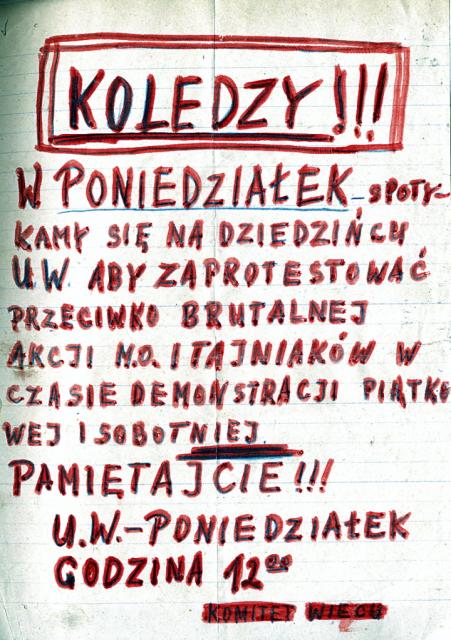 KOLEDZY!!!
W PONIEDZIAŁEK - SPOTY-
KAMY SIĘ NA DZIEDZIŃCU
U.W. ABY ZAPROTESTOWAĆ
PRZECIWKO BRUTALNEJ
AKCJI M.O. I TAJNIAKÓW W
CZASIE DEMONSTRACJI PIĄTKO
WEJ I SOBOTNIEJ.
PAMIĘTAJCIE!!!
U.W.-PONIEDZIAŁEK
GODZINA 12⁰⁰
KOMITET WIECU